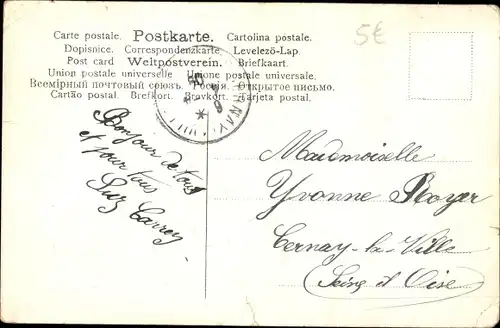 Carte postale. Postkarte. Cartolina postale.
Dopisnice. Correspondenzkarte. Levelező-Lap.
Post card Weltpostverein. Briefkaart.
Union postale universelle Unione postale universale.
Всемірный почтовый союзъ. Россія. Открытое письмо.
Cartão postal. Brefkort. Brevkort. Tarjeta postal.
5€
Bonjour de tous
et pour tous
Mademoiselle
Yvonne Royer
Cernay-la-Ville
(Seine et Oise)